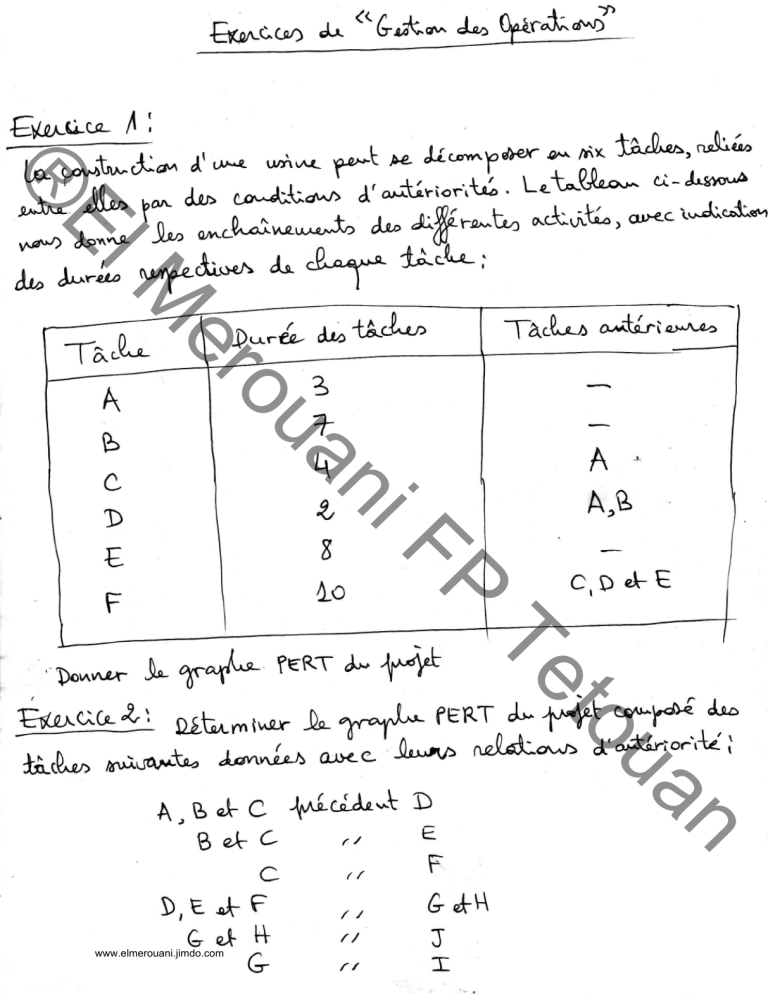 Exercices de "Gestion des Opérations"
Exercice 1:
La construction d'une usine peut se décomposer en six tâches, reliées
entre elles par des conditions d'antériorités. Le tableau ci-dessous
nous donne les enchaînements des différentes activités, avec indication
des durées respectives de chaque tâche:
Tâche Durée des tâches Tâches antérieures
A 3 —
B 7 —
C 4 A
D 2 A,B
E 8 —
F 10 C, D et E
Donner le graphe PERT du projet
Exercice 2: Déterminer le graphe PERT du projet composé des
tâches suivantes données avec leurs relations d'antériorité:
A, B et C précédent D
B et C " E
C " F
D, E et F " G et H
G et H " J
G " I
www.elmerouani.jimdo.com
®El Merouani FP Tetouan